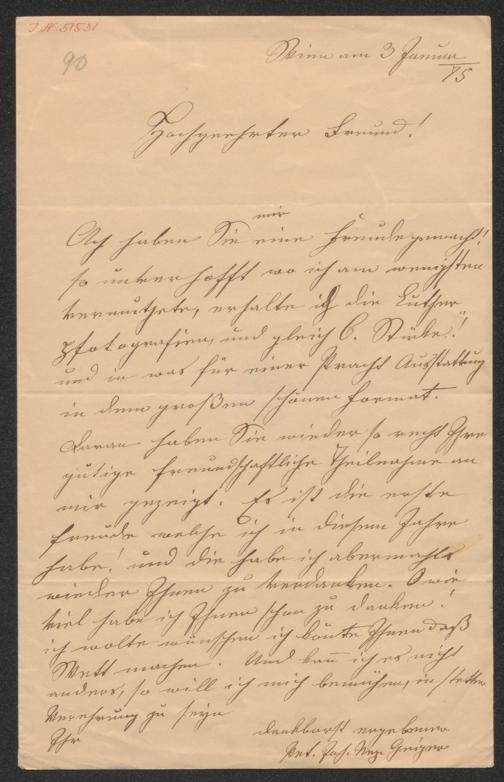 I.N. 51531
90
Wien am 3 Januar
75
Hochgeehrter Freund!
mir
Ach haben Sie eine Freude gemacht!
so unverhofft wo ich am wenigsten
vermuthete, erhalte ich die Luther
Photografien, und gleich 6. Stücke!
und in was für einer Pracht Ausstattung
in dem großen schönen Format.
Daran haben Sie wieder so recht Ihre
gütige freundschaftliche Theilnahme an
mir gezeigt. Es ist die erste
Freude welche ich in diesem Jahre
habe! und die habe ich abermahls
wieder Ihnen zu verdanken. O wie
viel habe ich Ihnen schon zu danken!
ich wolte wünschen ich könte Ihnen daß
Wett machen. Und kan ich es nicht
anders, so will ich mich bemühen, in steter
Verehrung zu seyn
Ihr dankbarst ergebener
Pet. Joh. Nep. Geiger